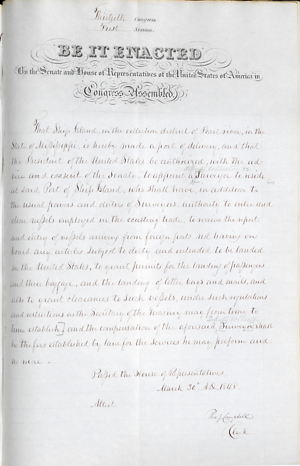 Thirtieth Congress
First Session
BE IT ENACTED
By the Senate and House of Representatives of the United States of America in
Congress Assembled,
That Ship Island, in the collection district of Pearl river, in the
State of Mississippi, is hereby made a port of delivery, and that
the President of the United States be authorized, with the ad-
vice and consent of the Senate, to appoint a Surveyor to reside
at said Port of Ship Island, who shall have, in addition to
the usual powers and duties of Surveyors, authority to enter and
clear vessels employed in the coasting trade, to receive the report
and entry of vessels arriving from foreign ports not having on
board any articles subject to duty and intended to be landed
in the United States, to grant permits for the landing of passengers
and their baggage, and the landing of letter bags and mails, and
also to grant clearances to such vessels, under such regulations
and restrictions as the Secretary of the Treasury may from time to
time establish, and the compensation of the aforesaid Surveyor shall
be the fees established by law for the services he may perform and
no more.
Passed the House of Representatives
March 30th A.D. 1848.
Attest
Campbell
Clerk